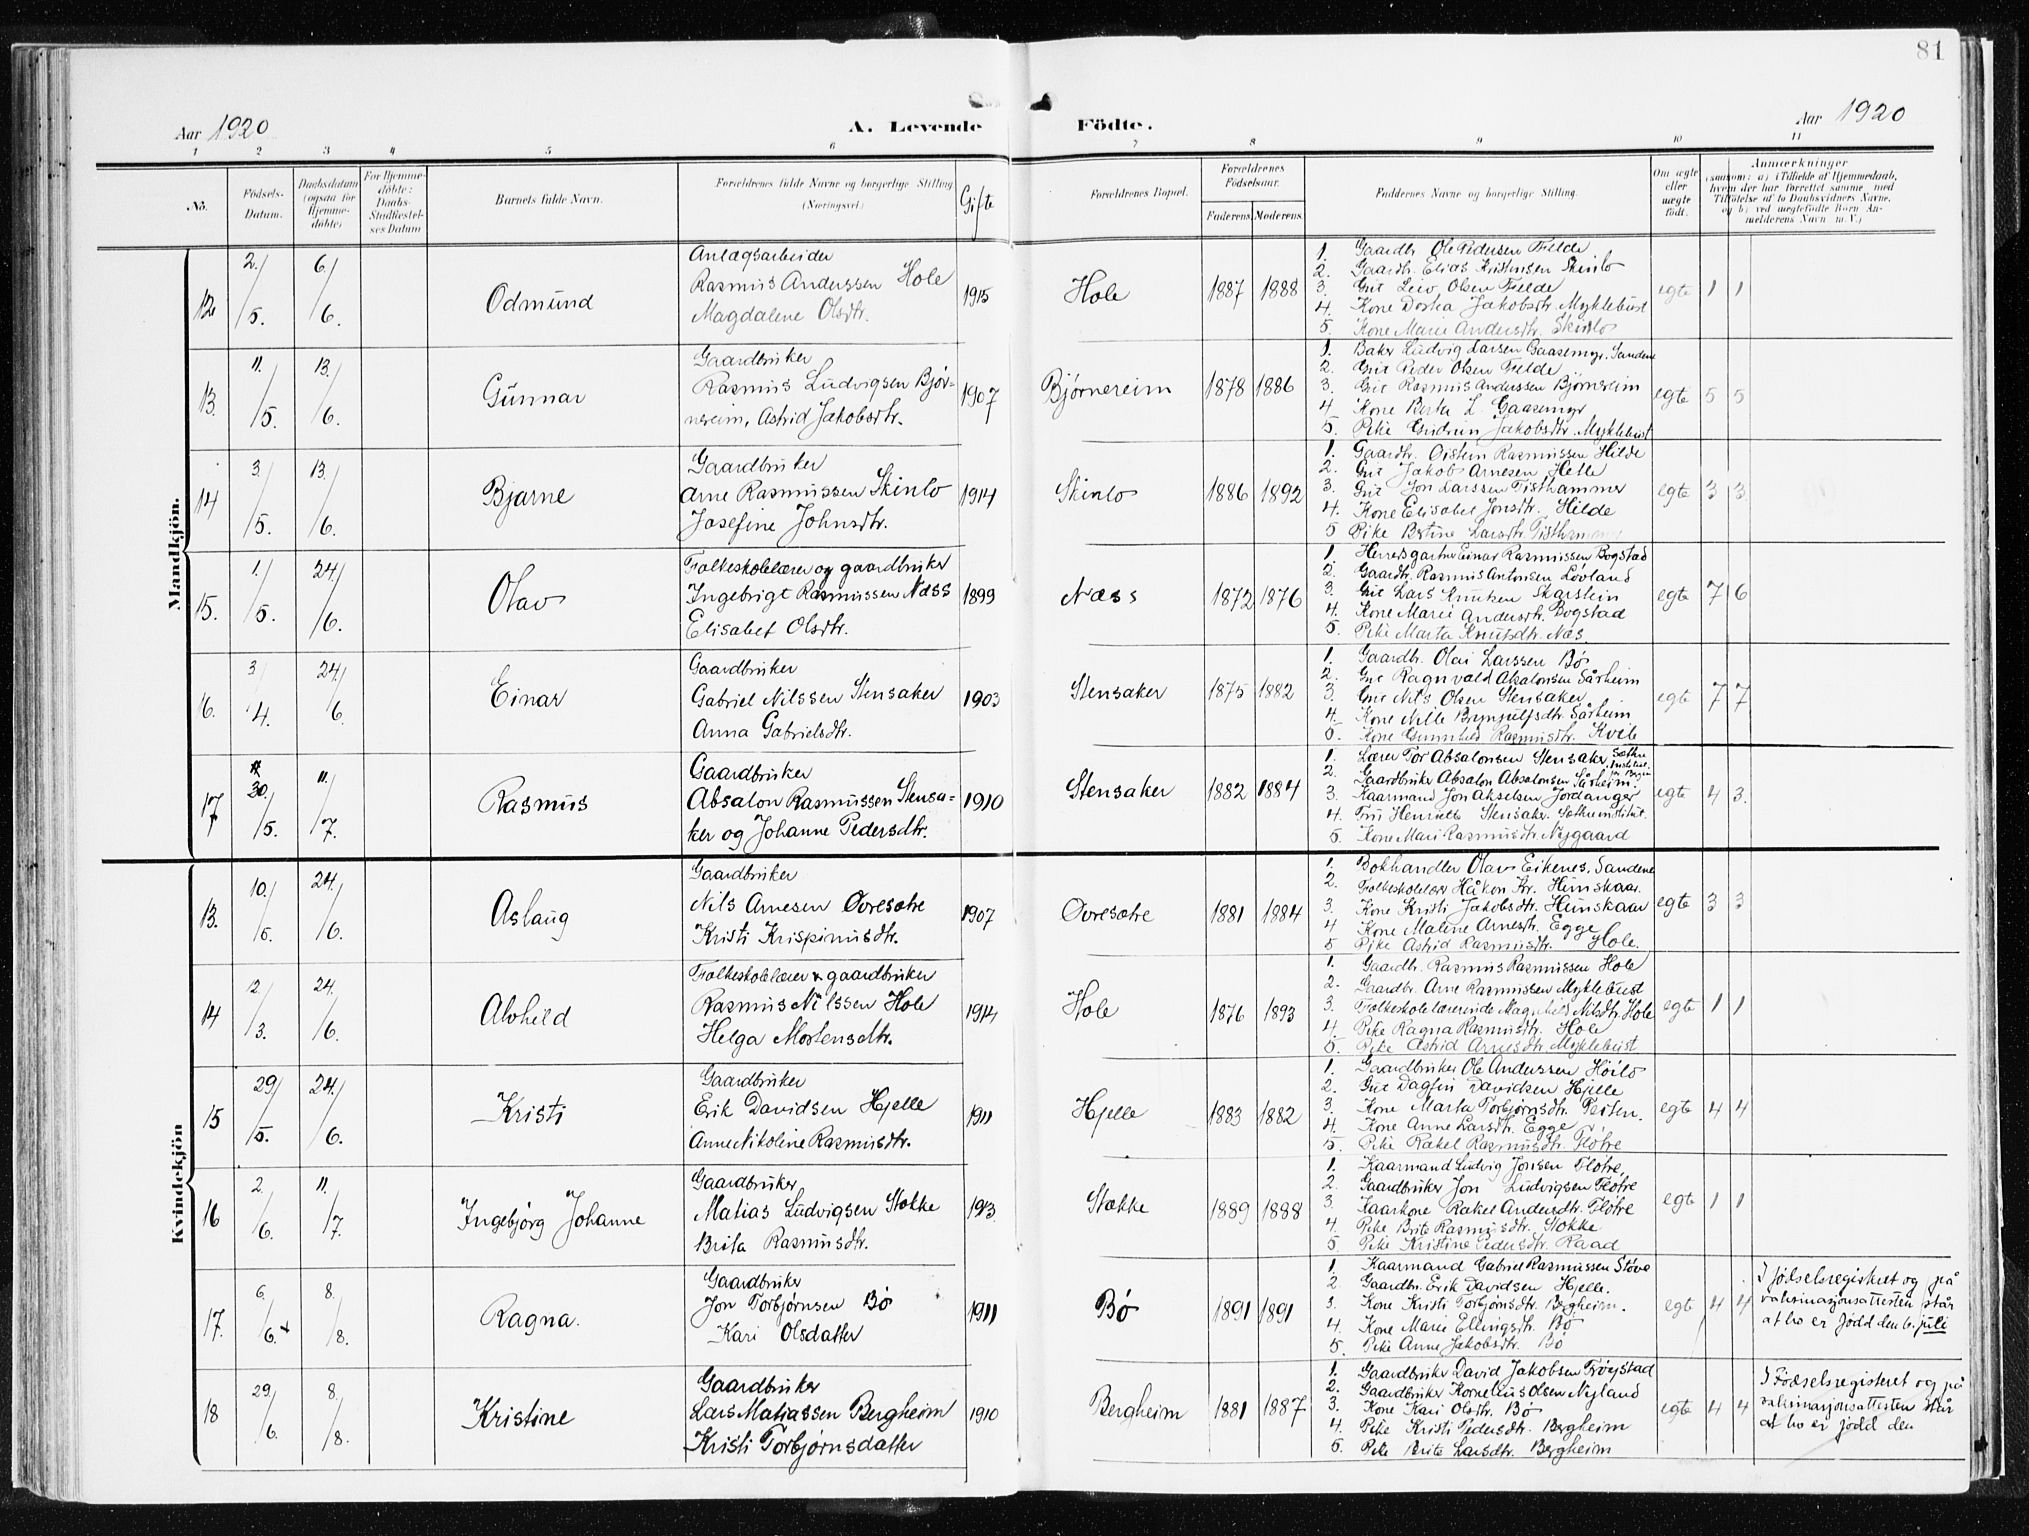 81
Aar 1920
A. Levende Födte.
Aar 1920
1 2 3 4 5 6 7 8 9 10 11
No.
Födsels-Datum.
Daabsdatum (ogsaa for Hjemme-döbte)
For Hjemme-döbte: Daabs-Stadfæstel-ses Datum
Barnets fulde Navn.
Forældrenes fulde Navne og borgerlige Stilling (Næringsvei.)
Gifte
Forældrenes Bopæl.
Forældrenes Födselsaar.
Faderens Moderens
Faddernes Navne og borgerlige Stilling.
Om ægte eller uægte födt.
Anmærkninger
(saasom: a) i Tilfælde af Hjemmedaab,
hvem der har forrettet samme, med
Tilföielse af to Daabsvidners Navne,
og b) ved uægtefödte Börn An-
melderens Navn m. V.)
Mandkjön.
12 2/5. 6/6. Odmund
Anlægsarbeider
Rasmus Anderssen Hole
Magdalene Olsdtr.
1915 Hole 1887 1888
1. Gaardbr. Ole Pedersen Fjelde
2. Gaardbr. Elias Kristensen Skinlo
3. Gut Leiv Olsen Fjelde
4. Kone Dortea Jakobsdtr. Myklebust
5. Kone Marie Andersdtr. Skinlo
egte 1 1
13. 11/5. 13/6. Gunnar
Gaardbruker
Rasmus Ludvigsen Bjør-
nereim, Astrid Jakobsdtr.
1907 Bjørnereim 1878 1886
1. Baker Ludvig Larsen Gaasemyr. Sandene
2. Gut Peder Olsen Fjelde
3. Gut Rasmus Anderssen Bjørnereim
4. Kone Berta L. Gaasemyr
5. Pike Gudrun Jakobsdtr. Myklebust
egte 5 5
14 3/5. 13/6. Bjarne
Gaardbruker
Arne Rasmussen Skinlo
Josefine Johnsdtr.
1914 Skinlo 1886 1892
1. Gaardbr. Øistein Rasmussen Hilde
2. Gut Jakob Arnesen Helle
3. Gut Jon Larssen Tisthammer
4. Kone Elisabet Jonsdtr. Hilde
5 Pike Bertine Larsdtr. Tisthammer
egte 3 3
15. 1/5. 24/6. Olav
Folkeskolelærer og gaardbruker
Ingebrigt Rasmussen Næss
Elisabet Olsdtr.
1899 Næss 1872 1876
1. Herredsgartner Einar Rasmussen Bogstad
2. Gaardbr. Rasmus Antonsen Løvland
3. Gut Lars Knutsen Skarstein
4. Kone Marie Andersdtr. Bogstad
5. Pike Marta Knutsdtr. Næs
egte 7 6
16. 3/4. 24/6. Einar
Gaardbruker
Gabriel Nilssen Stensaker
Anna Gabrielsdtr.
1903 Stensaker 1875 1882
1. Gaardbr. Olai Larssen Bø
2. Gut Ragnvald Absalonsen Sårheim
3. Gut Nils Olsen Stensaker
4. Kone Nille Brynjulfsdtr. Sårheim
5. Kone Gunnhild Rasmusdtr. Kvile
egte 7 7
17 30./5. 11./7. Rasmus
Gaardbruker
Absalon Rasmussen Stensa-
ker og Johanne Pedersdtr.
1910 Stensaker 1882 1884
1. Lærer Tor Absalonsen Stensaker,
2. Gaardbruker Absalon Absalonsen Sårheim.
3. Kaarmand Jon Akselsen Jordanger
4. Fru Henriette Stensaker.
5. Kone Mari Rasmusdtr. Nygaard
egte 4 3.
Kvindekjön
13. 10/5. 24/6. Aslaug
Gaardbruker
Nils Arnesen Øvresætre
Kristi Krispinusdtr.
1907 Øvresætre 1881 1884
1. Bokhandler Olav Eikenes, Sandene
2. Folkeskolelærer Håkon Kr. Hunskaar.
3. Kone Kristi Jakobsdtr. Hunskaar
4 Kone Maline Arnesdtr. Egge
5 Pike Astrid Rasmusdtr. Hole.
egte 3 3
14 2/3. 24/6. Alvhild
Folkeskolelærer & gaardbruker
Rasmus Nilssen Hole
Helga Mortensdtr.
1914 Hole 1876 1893
1. Gaardbr. Rasmus Rasmussen Hole
2. Gaardbr. Arne Rasmussen Myklebust
3. Folkeskolelærerinde Magnhild Nilsdtr. Hole
4. Pike Ragna Rasmusdtr. Hole
5. Pike Astrid Arnesdtr. Myklebust
egte 1 1
15 29/5. 24/6. Kristi
Gaardbruker
Erik Davidsen Hjelle
Anne Nikoline Rasmusdtr.
1911 Hjelle 1883 1882
1. Gaardbruker Ole Anderssen Høilo
2. Gut Dagfin Davidsen Hjelle
3. Kone Marta Torbjørnsdtr. Teiten.
4. Kone Anne Larsdtr. Egge
5. Pike Rakel Rasmusdtr. Fløtre
egte 4 4
16 2./6. 11./7. Ingebjørg Johanne
Gaardbruker
Matias Ludvigsen Stokke
Brita Rasmusdtr.
1913. Stokke 1889 1888
1. Kaarmand Ludvig Jonsen Fløtre
2. Gaardbruker Jon Ludvigsen Fløtre
3. Kaarkone Rakel Andersdtr. Fløtre
4. Pike Brite Rasmusdtr. Stokke
5. Pike Kristine Pedersdtr. Raad
egte 1 1
17. 6./6. + 8./8. Ragna.
Gaardbruker
Jon Torbjørnsen Bø
Kari Olsdatter
1911 Bø 1891 1891
1. Kaarmand Gabriel Rasmussen Støve
2 Gaardbr. Erik Davidsen Hjelle.
3. Kone Kristi Torbjørnsdtr. Bergheim.
4. Kone Marie Ellingsdtr. Bø
5. Pike Anne Jakobsdtr. Bø
egte 4 4
I fødselsregistret og på
vaksinasjonsattesten står
at ho er fødd den 6. juli
18 29/6. 8./8. Kristine
Gaardbruker
Lars Matiassen Bergheim
Kristi Torbjørnsdatter
1910 Bergheim 1881 1887
1. Gaardbruker David Jakobsen Frøystad
2. Gaardbruker Kornelius Olsen Nyland
3. Kone Kari Olsdtr. Bø
4. Pike Kristi Pedersdtr. Bergheim
5. Pike Brite Larsdtr. Bergheim
egte 4 4
I Fødselsregisteret og på
vaksinasjonsattesten står
at ho er fødd den